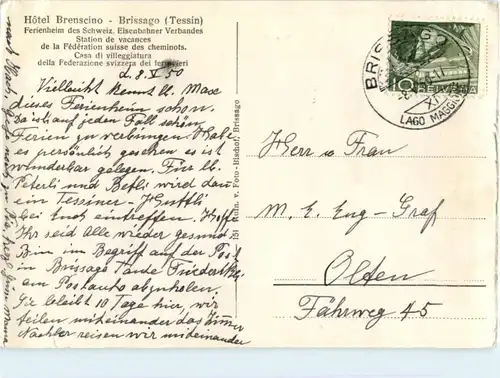 Hôtel Brenscino - Brissago (Tessin)
Ferienheim des Schweiz. Eisenbahner Verbandes
Station de vacances
de la Fédération suisse des cheminots.
Casa di villeggiatura
della Federazione svizzera dei ferrovieri
d. 8. V. 50
Vielleicht kennt lb. Max
dieses Ferienheim schon.
Da ist auf jeden Fall schön
Ferien zu verbringen. Habe
es persönlich gesehen es ist
wunderbar gelegen. Für lb.
Peterli und Betli wird dann
ein Tessiner-Huttli
bei Euch eintreffen. Hoffe
Ihr seid Alle wieder gesund
Bin im Begriff auf der Post
in Brissago Tante Frieda
am Postauto abzuholen.
Sie bleibt 10 Tage hier, wir
teilen miteinander das Zimmer
Nachher reisen wir miteinander
nach
Mama
Foto-Bischof, Brissago
BRISSAGO
LAGO MAGGIORE
10 HELVETIA
Herr u. Frau
M. E. Eng-Graf
Olten
Fährweg 45